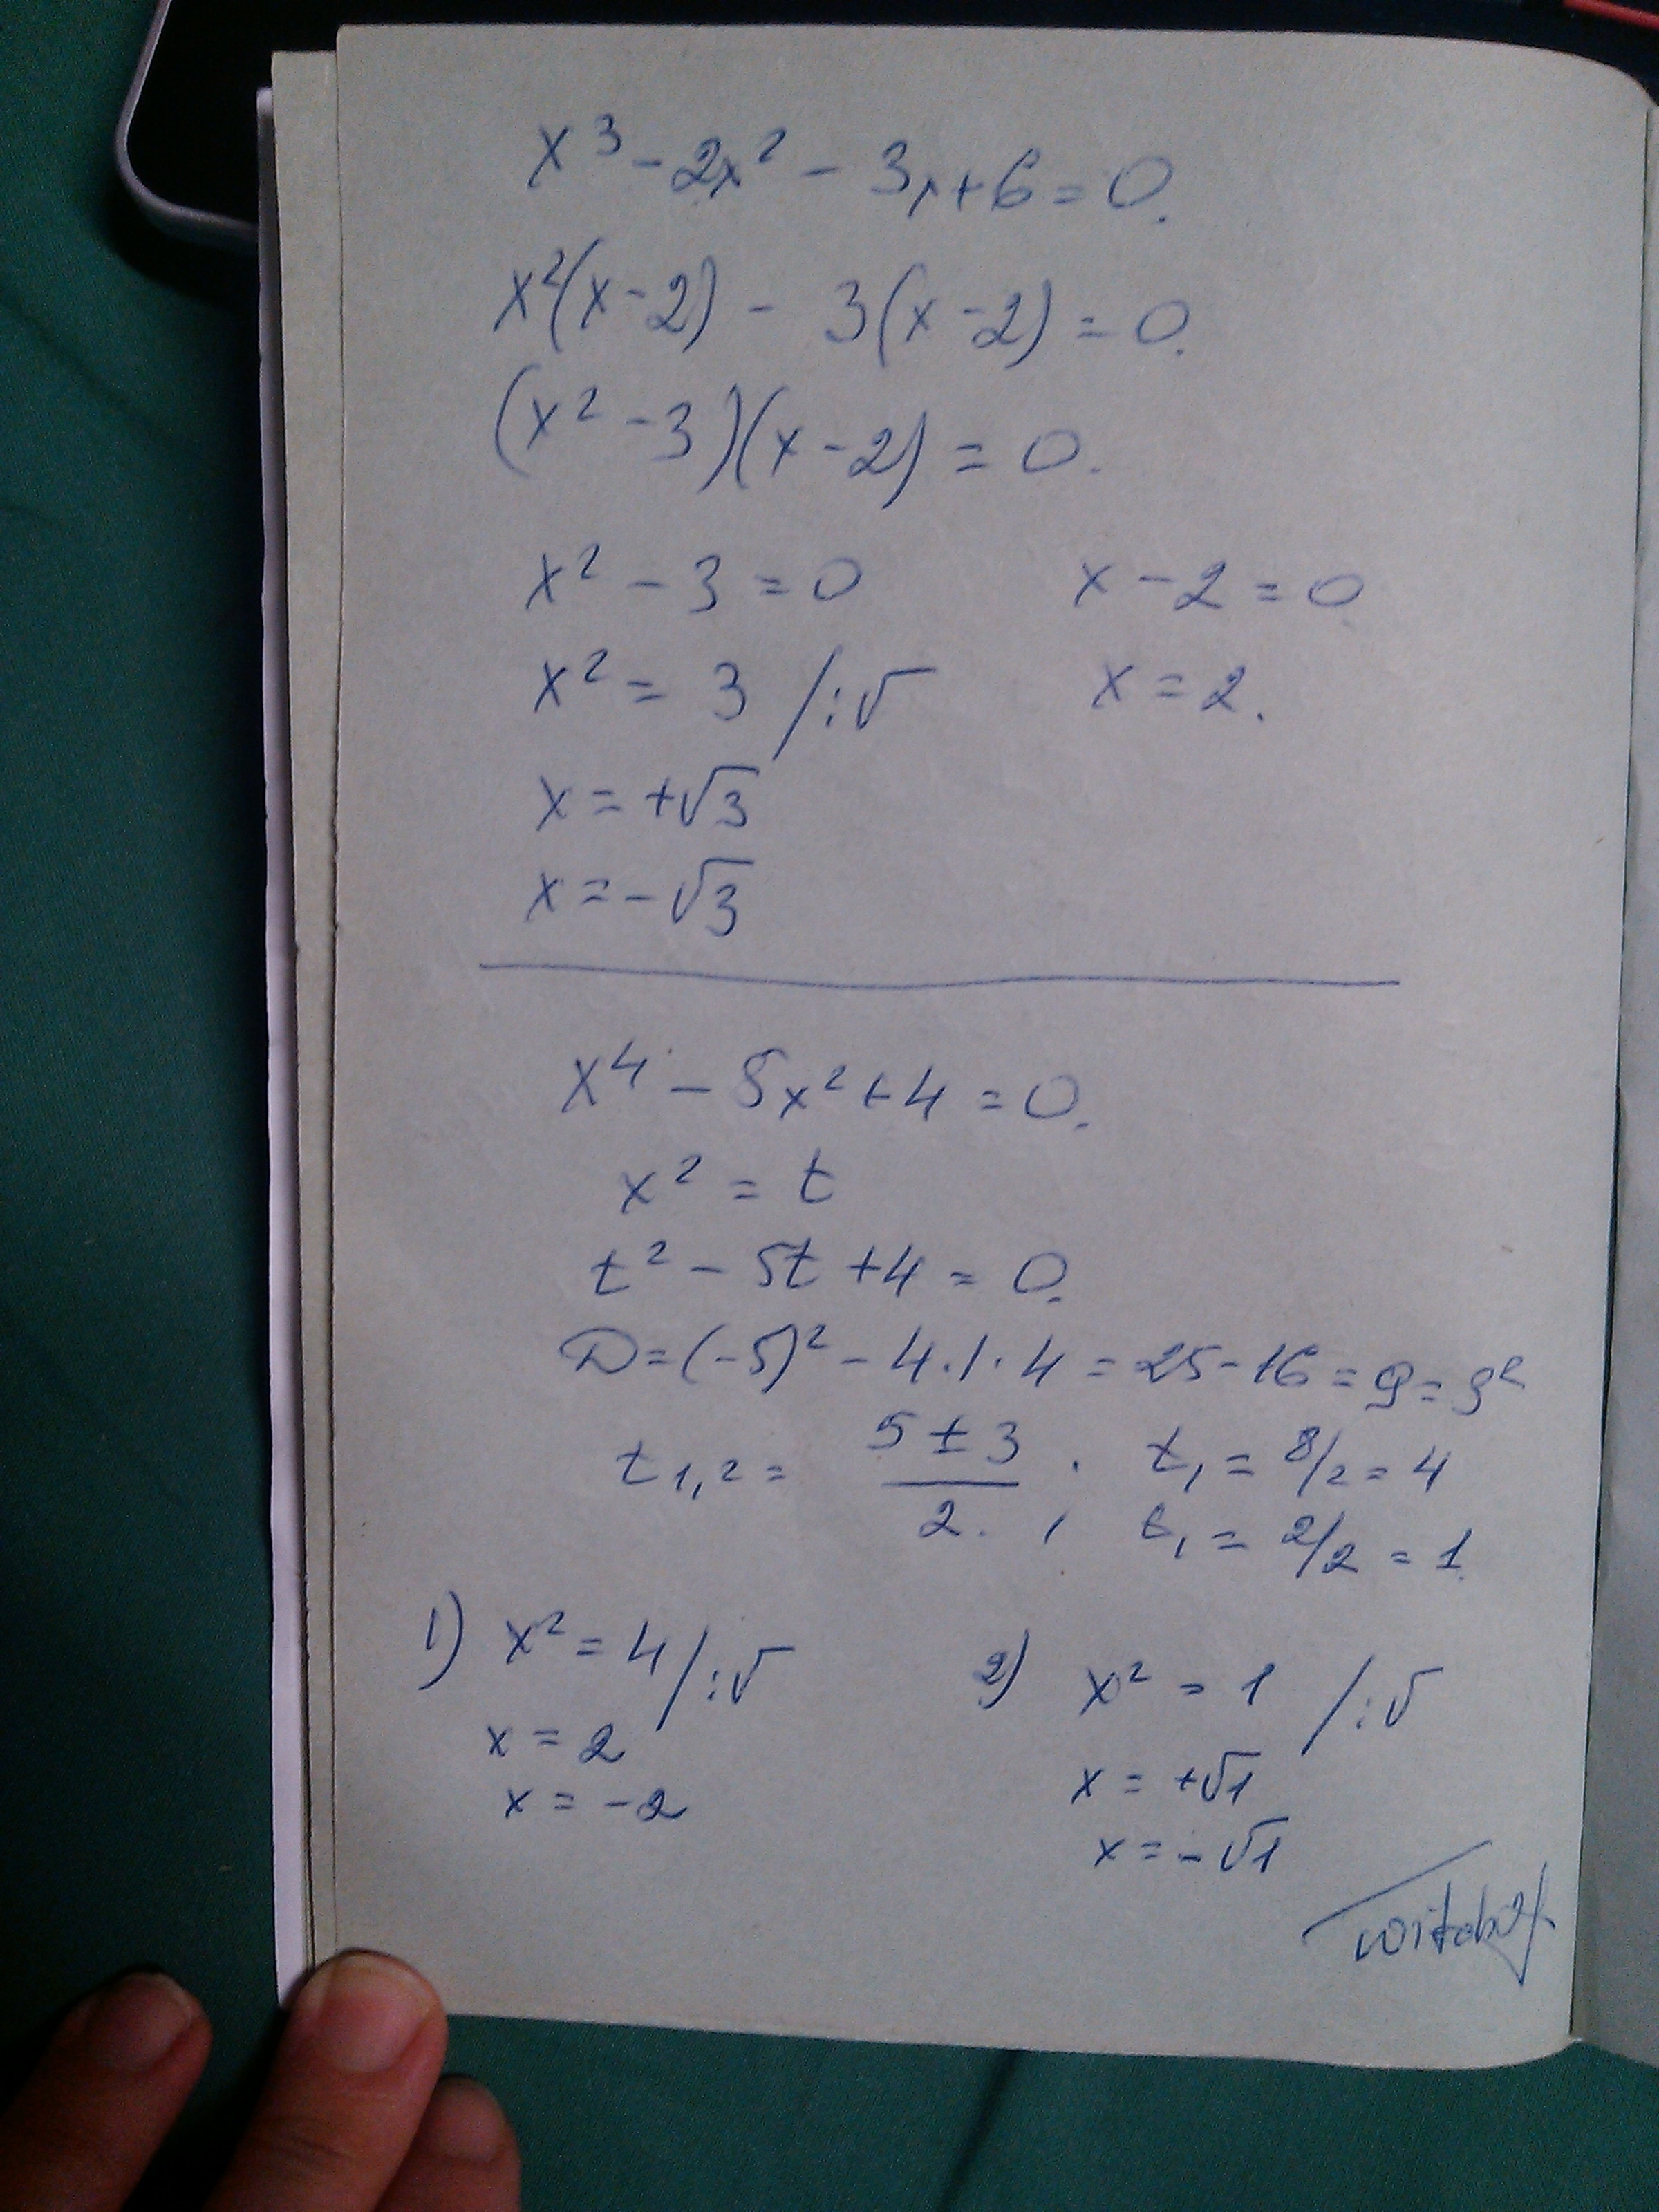 x³ - 2x² - 3x + 6 = 0.
x²(x - 2) - 3(x - 2) = 0.
(x² - 3)(x - 2) = 0.
x² - 3 = 0 x - 2 = 0
x² = 3 /:√ x = 2.
x = +√3
x = -√3
x⁴ - 5x² + 4 = 0.
x² = t
t² - 5t + 4 = 0.
D = (-5)² - 4·1·4 = 25 - 16 = 9 = 3²
t₁,₂ = (5 ± 3)/2 ; t₁ = 8/2 = 4
t₁ = 2/2 = 1
1) x² = 4 /:√ 2) x² = 1 /:√
x = 2 x = +√1
x = -2 x = -√1